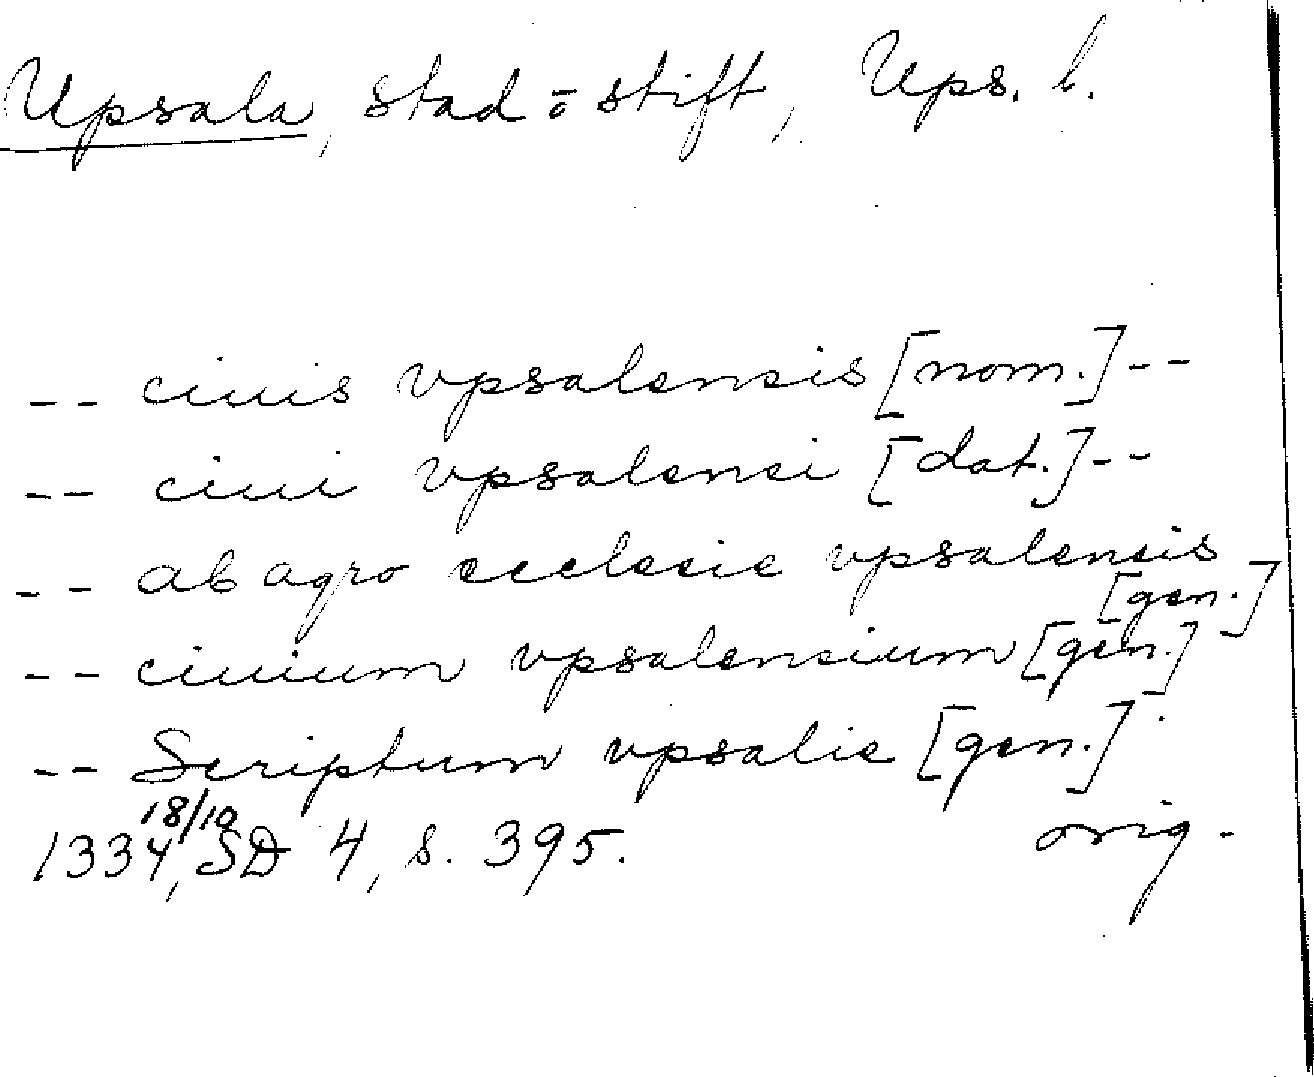 Upsala, stad o stift, Ups. l.
-- ciuis vpsalensis [nom.] --
-- ciui vpsalensi [dat.] --
-- ab agro ecclesie vpsalensis
[gen.]
-- ciuium vpsalensium [gen.]
-- Scriptum vpsalie [gen.]
18/10
1334, SD 4, s. 395. orig.